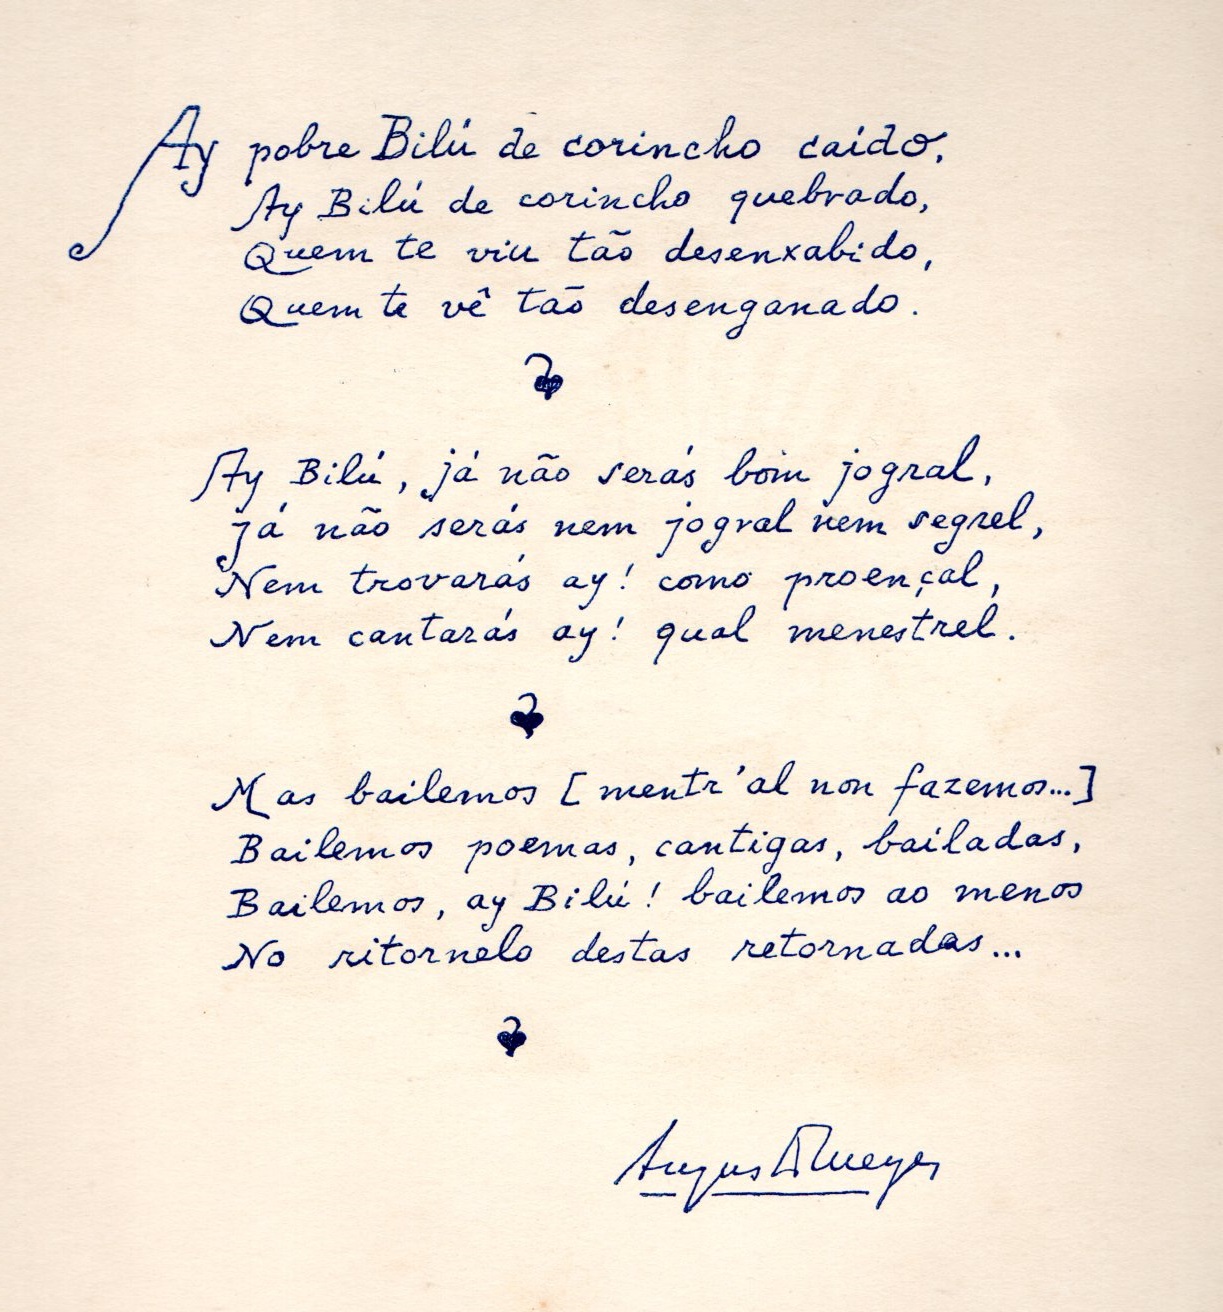 Ay pobre Bilú de corincho caído,
Ay Bilú de corincho quebrado,
Quem te viu tão desenxabido,
Quem te vê tão desenganado.
Ay Bilú, já não serás bom jogral,
já não serás nem jogral nem segrel,
Nem trovarás ay! como proençal,
Nem cantarás ay! qual menestrel.
Mas bailemos [mentr'al non fazemos...]
Bailemos poemas, cantigas, bailadas,
Bailemos, ay Bilú! bailemos ao menos
No ritornelo destas retornadas...
Augusto Meyer